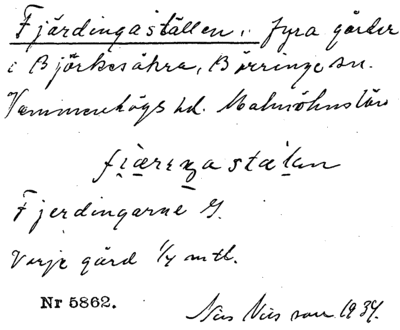 Fjärdingaställen, fyra gårdar
i Björkesåkra, Börringe sn.
Vemmenhögs hd. Malmöhus län
Fjerdingarne G.
Varje gård 1/4 mtl.
Nr 5862.
Nils Nilsson 1934.